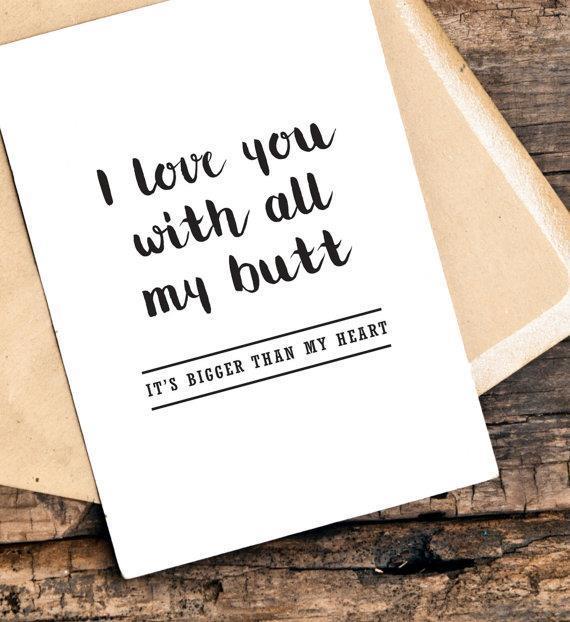 I love you
with all
my butt
IT'S BIGGER THAN MY HEART